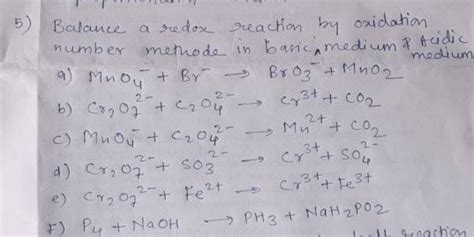 5) Balance a redox reaction by oxidation
number methode in basic, medium & Acidic
medium
a) MnO₄⁻ + Br⁻ → BrO₃⁻ + MnO₂
b) Cr₂O₇²⁻ + C₂O₄²⁻ → Cr³⁺ + CO₂
c) MnO₄⁻ + C₂O₄²⁻ → Mn²⁺ + CO₂
d) Cr₂O₇²⁻ + SO₃²⁻ → Cr³⁺ + SO₄²⁻
e) Cr₂O₇²⁻ + Fe²⁺ → Cr³⁺ + Fe³⁺
F) P₄ + NaOH → PH₃ + NaH₂PO₂
reaction